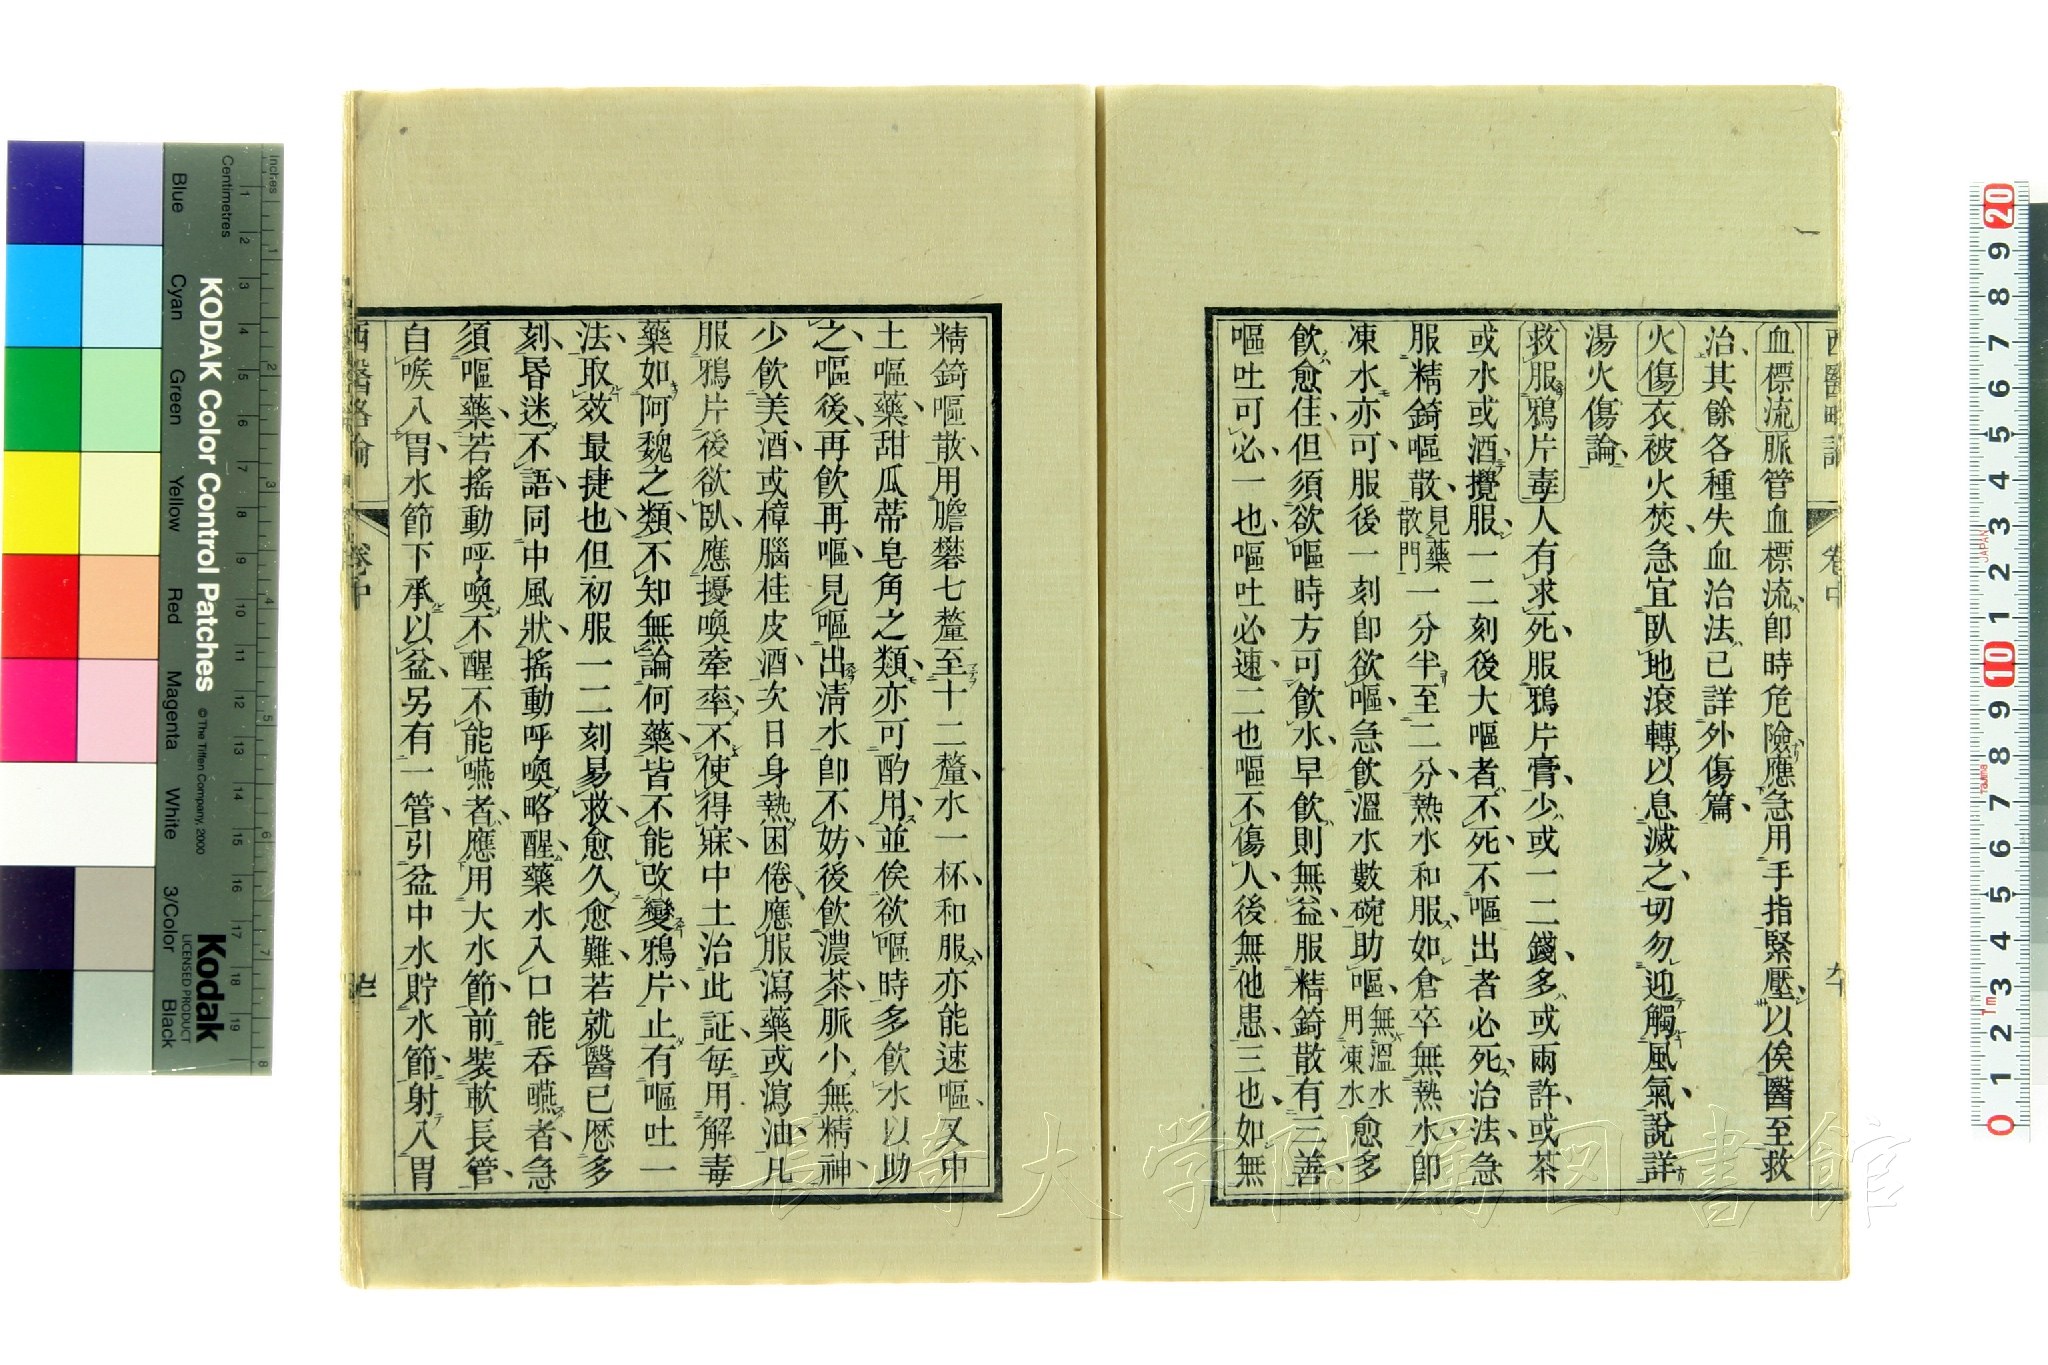 血標流脈管血標流即時危險應急用手指緊壓以俟醫至救
治其餘各種失血治法已詳外傷篇
火傷衣被火焚急宜臥地滾轉以息滅之切勿迎觸風氣說詳
湯火傷論
救服鴉片毒人有求死服鴉片膏少或一二錢多或兩許或茶
或水或酒攪服一二刻後大嘔者不死不嘔出者必死治法急
服精錡嘔散見藥散門一分半至二分熱水和服如倉卒無熱水即
凍水亦可服後一刻即欲嘔急飲溫水數碗助嘔無溫水用凍水愈多
飲愈佳但須欲嘔時方可飲水早飲則無益服精錡散有三善
嘔吐可必一也嘔吐必速二也嘔不傷人後無他患三也如無
西醫略論
卷中
精錡嘔散用膽礬七釐至十二釐水一杯和服亦能速嘔又中
土嘔藥甜瓜蒂皂角之類亦可酌用並俟欲嘔時多飲水以助
之嘔後再飲再嘔見嘔出清水即不妨後飲濃茶脈小無精神
少飲美酒或樟腦桂皮酒次日身熱困倦應服瀉藥或瀉油凡
服鴉片後欲臥應擾喚牽率不使得寐中土治此証每用解毒
藥如阿魏之類不知無論何藥皆不能改變鴉片止有嘔吐一
法取效最捷也但初服一二刻易救愈久愈難若就醫已歷多
刻昏迷不語同中風狀搖動呼喚略醒藥水入口能吞嚥者急
須嘔藥若搖動呼喚不醒不能嚥者應用大水節前裝軟長管
自喉入胃水節下承以盆另有一管引盆中水貯水節射入胃
西醫略論
卷中
KODAK Color Control Patches
© The Tiffen Company, 2000
Kodak
LICENSED PRODUCT
Inches
Centimetres
Blue
Cyan
Green
Yellow
Red
Magenta
White
3/Color
Black
1 2 3 4 5 6 7 8 9 10 11 12 13 14 15 16 17 18 19
1 2 3 4 5 6 7 8
20 9 8 7 6 5 4 3 2 1 10 9 8 7 6 5 4 3 2 1 0
JAPAN
長崎大学附属図書館